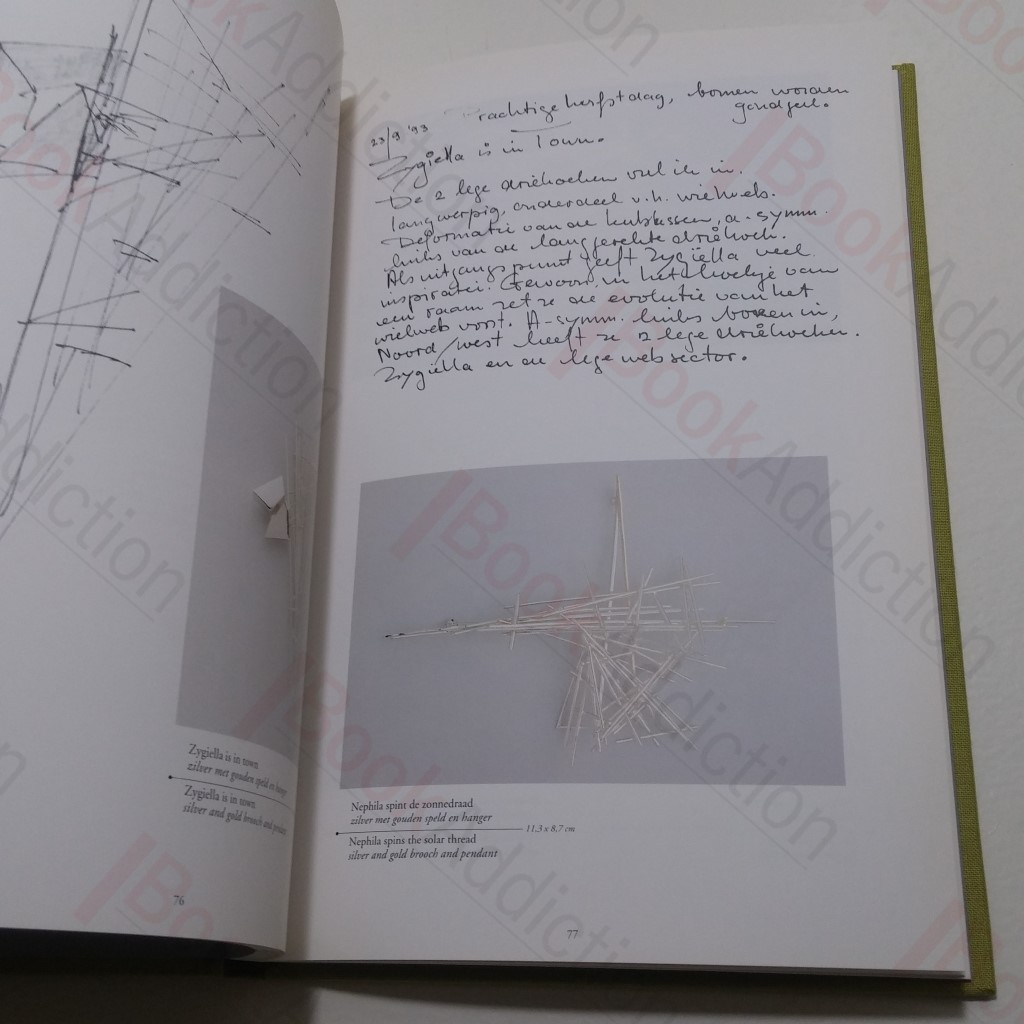 Zygiella is in town
zilver met gouden speld en hanger
Zygiella is in town
silver and gold brooch and pendant
76
23/9 '93 rachtige herfstdag, bomen worden
goudgeel.
Zygiella is in Town.
De 2 lege driehoeken vul ik in.
langwerpig, onderdeel v.h. wielweb.
Deformatie van de a-symm.
links van de langgerekte driehoek.
Als uitgangspunt geeft Zygiella veel
inspiratie. Gewoon, in het hoekje van
een raam zet ze de evolutie van het
wielweb voort. A-symm. links boven in,
Noord/west heeft ze 2 lege driehoeken.
Zygiella en de lege websector.
Nephila spint de zonnedraad
zilver met gouden speld en hanger
11.3 x 8.7 cm
Nephila spins the solar thread
silver and gold brooch and pendant
77
BookAddiction